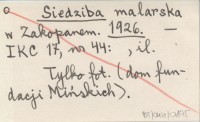 Siedziba malarska
w Zakopanem. 1926. —
IKC 17, nr 44: , il.
Tylko fot. (dom fun-
dacji Mińskich).